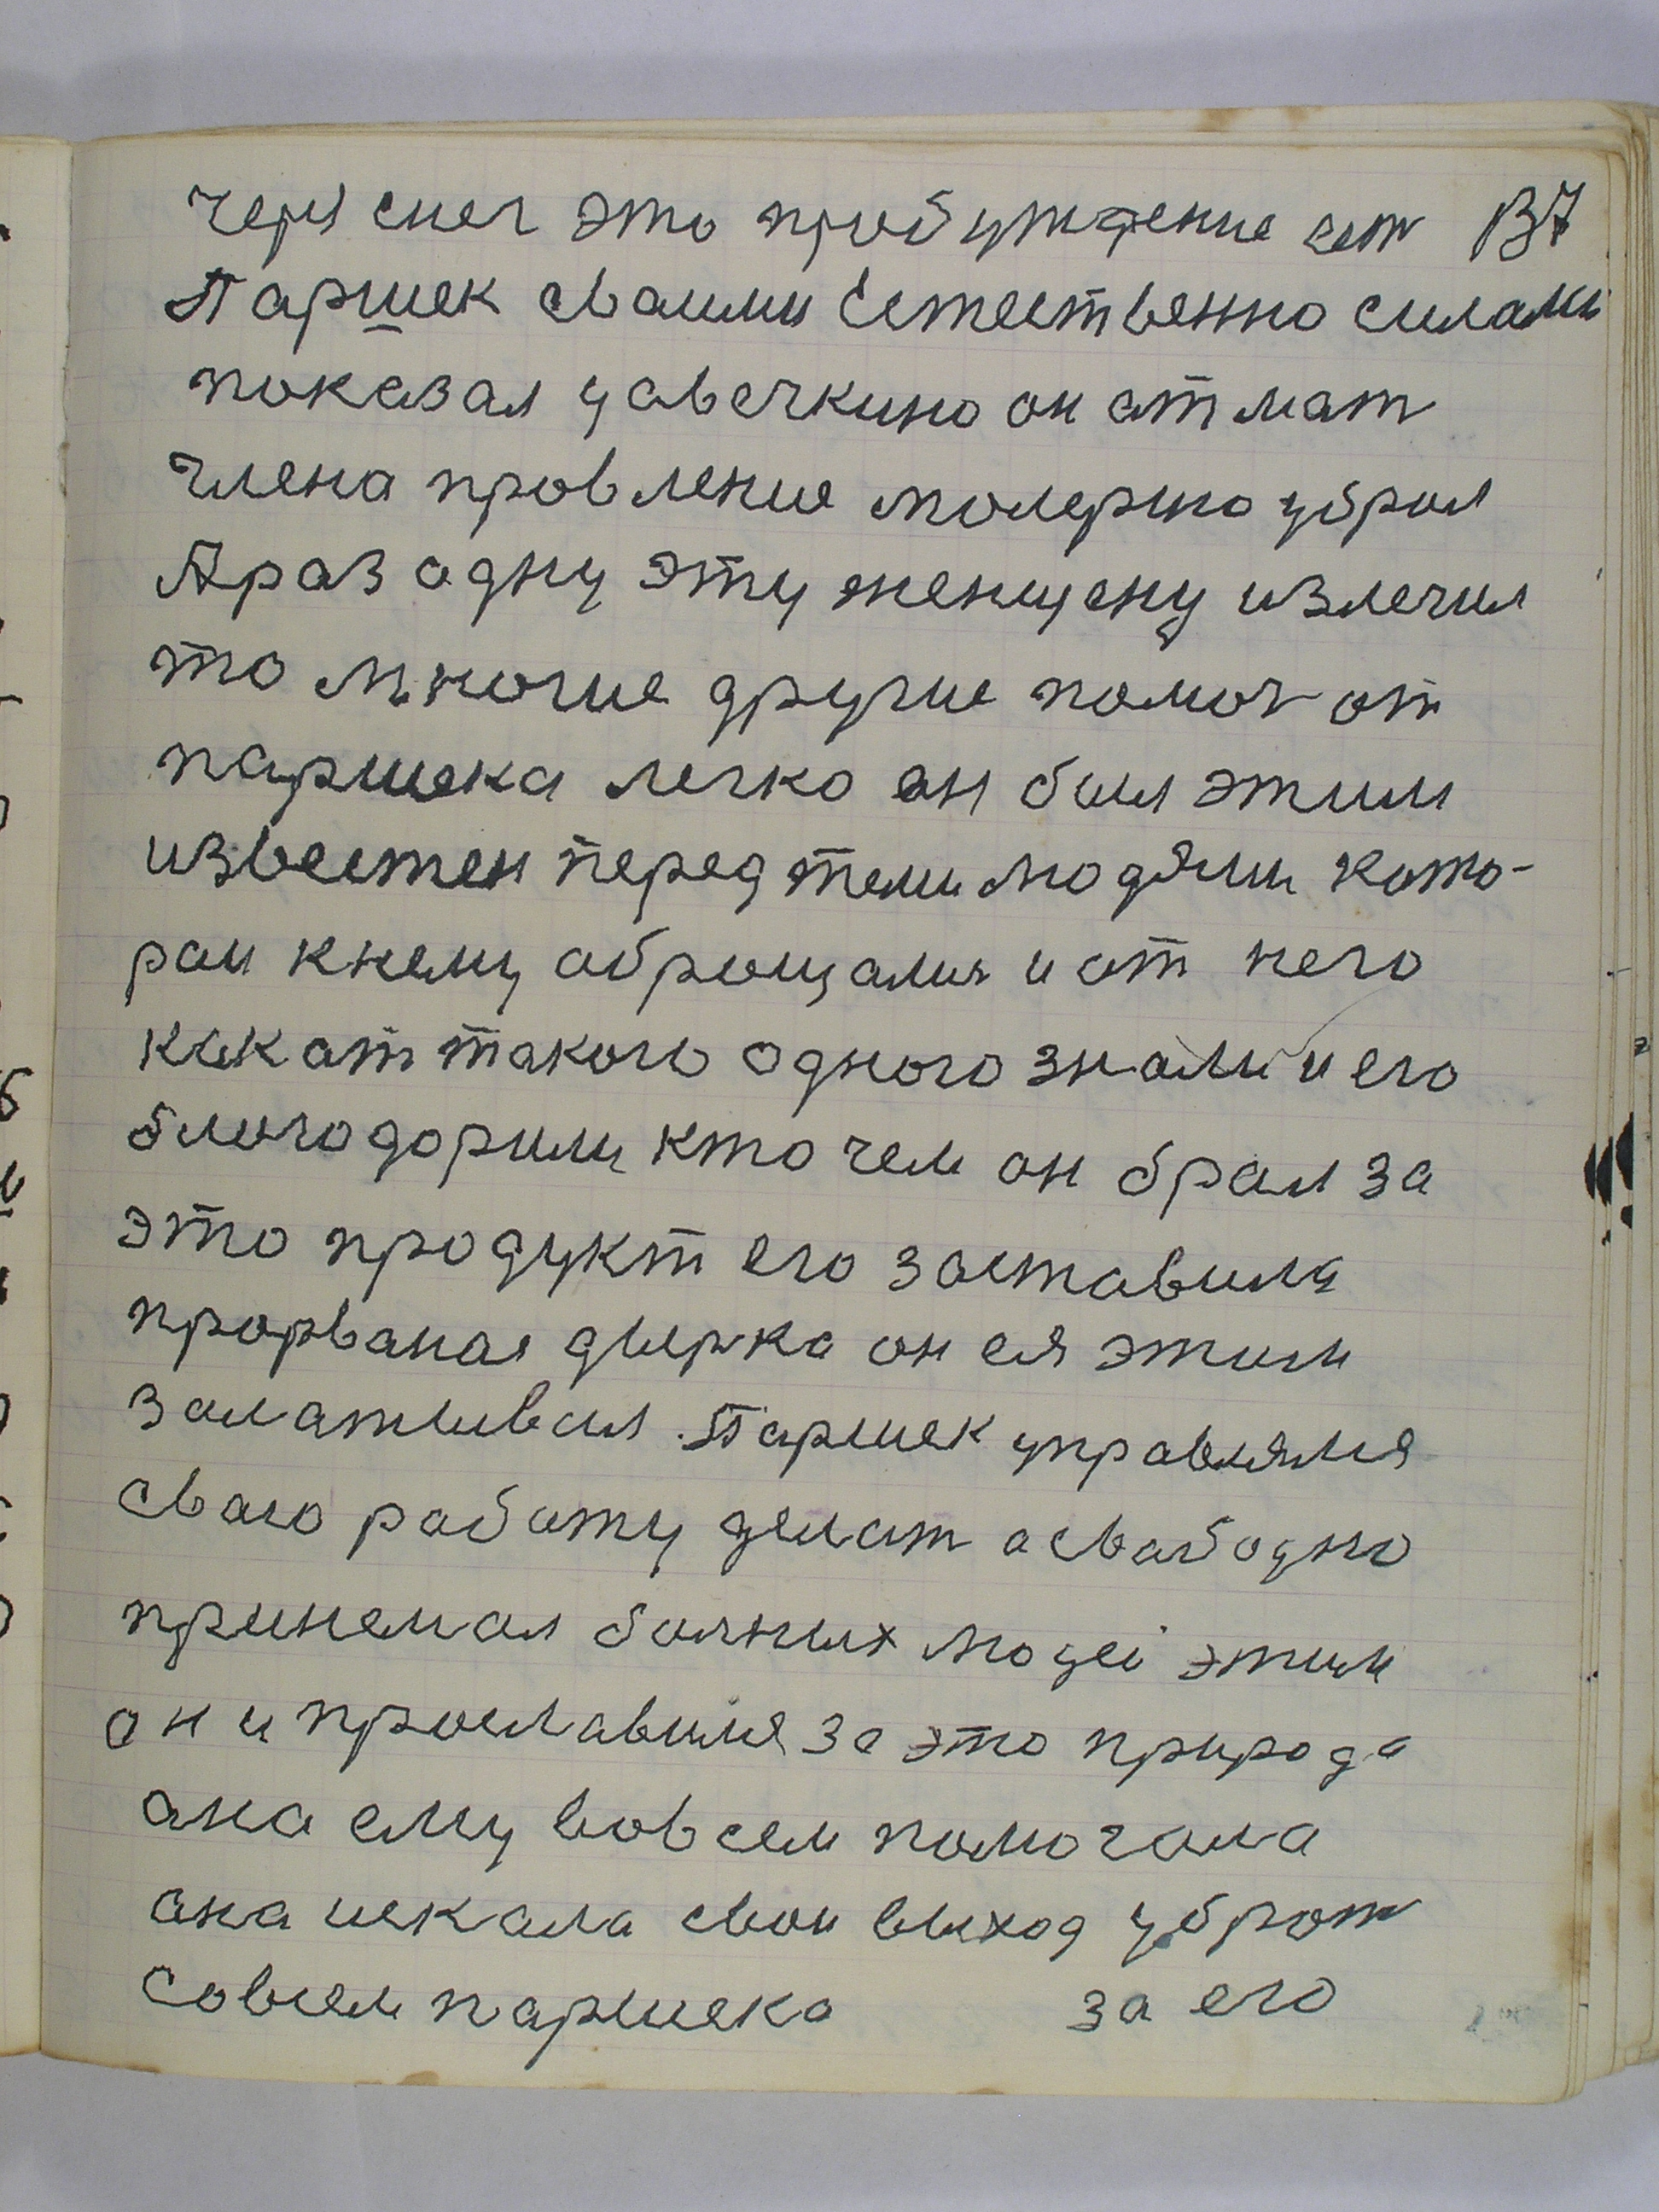 через снег это пробуждение ест 137
Паршек сваими Естественно силами
показал у авечкино он ат мат
члена провление молерию убрал
А раз адну эту женщену излечил
то многие другие помоч от
паршека легко он был этим
известен перед теми людями кото-
раи к нему оброщалися и от него
как от такого одного знали и его
благодорили кто чем он брал за
это продукт его заставила
прорваная дырка он ея этим
залативал. Паршек управлялся
сваю работу делат а свабодно
принемал болних людеі этим
он и прославился за это природа
ана ему вовсем помогала
она искала свои выход убрат
совсем паршека за его